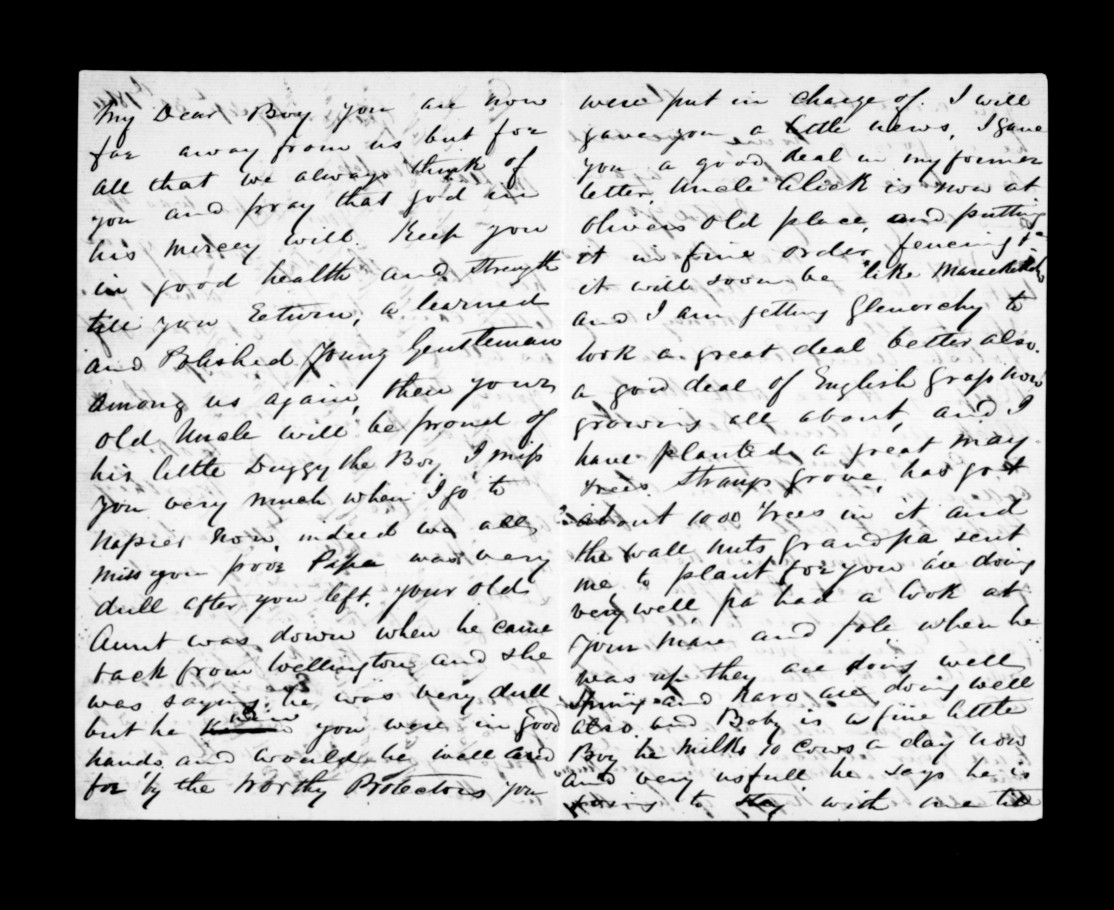 My Dear Boy you are now
far away from us but for
all that we always think of
you and pray that god in
his mercey will Keep you
in good health and strength
till you Return, a learned
and Polished Young Gentleman
among us again, then your
old Uncle will be proud of
his little Duggy the Boy, I miss
you very much when I go to
Napier now, indeed we all
miss you poor Papa was very
dull after you left, your old
Aunt was down when he came
back from Wellington, and she
was saying he was very dull
but he you were in good
hands and would be well cared
for by the worthy Protectors you
were put in charge of. I will
gave you a little news, I gave
you a good deal in my former
letter, Uncle Alick is now at
Olivers old place, and putting
it in fine order, fencing &c
it will soon be like
and I am getting Glenorchy to
look a great deal better also.
a good deal of English grass now
growing all about, and I
have planted a great may
trees. Strays grove, has got
about 1000 trees in it and
the wall nuts Grandpa sent
me to plant for you are doing
very well, pa had a look at
your mare and fole, when he
was up they are doing well
and Karo are doing well
also and Boby is a fine little
Boy he milks 10 cows a day now
and very usfull he says he is
going to stay with me till